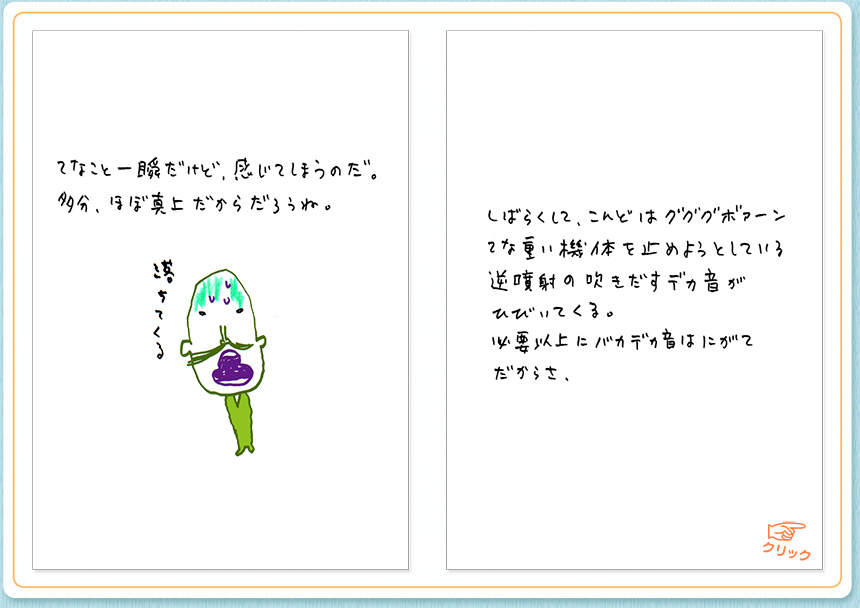 てなこと一瞬だけど、感じてしまうのだ。
多分、ほぼ真上だからだろうね。
落ちてくる
しばらくして、こんどはグググボァーン
てな重い機体を止めようとしている
逆噴射の吹きだすデカ音が
ひびいてくる。
必要以上にバカデカ音はにがて
だからさ、
クリック